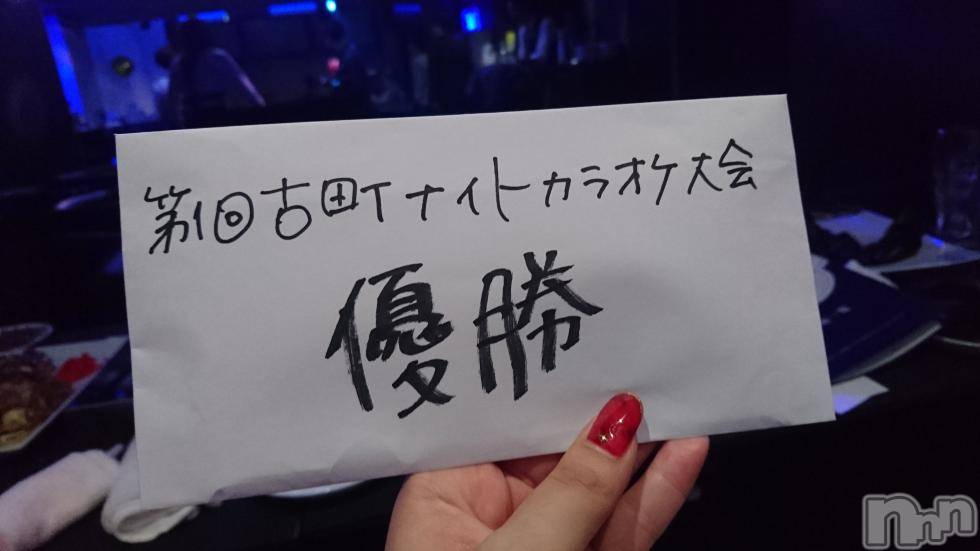 第1回古町ナイトカラオケ大会
優勝
nnn